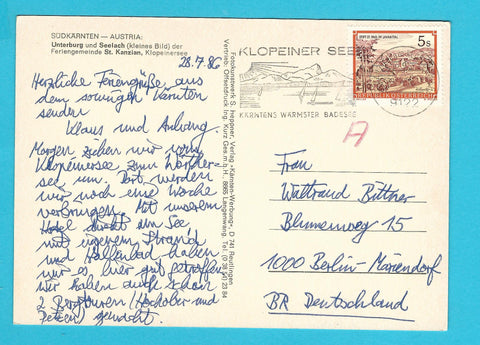 SÜDKÄRNTEN – AUSTRIA:
Unterburg und Seelach (kleines Bild) der
Feriengemeinde St. Kanzian, Klopeinersee
28.7.86
Herzliche Feriengrüße aus
dem sonnigen Kärnten
senden
Klaus und Anhang.
Morgen ziehen wir vom
Klopeinersee zum Wörther-
see um. Dort werden
wir noch eine Woche
verbringen. Mit unserem
Hotel direkt am See
mit eigenem Strand
und Hallenbad haben
wir es hier gut getroffen
Wir haben auch schon
2 Bergtouren (Hochobir und
Petzen) gemacht.
Fotokunstwerk S. Heppner, Verlag «Kärnten-Werbung», D 741 Reutlingen
Vertrieb: Offsetdruck Ing. Kurz Ges.m.b.H., 8665 Langenwang, Tel.
KLOPEINER SEE
KÄRNTENS WÄRMSTER BADESEE
5s
REPUBLIK ÖSTERREICH
9122
A
Frau
Waltraud Bittner
Blumenweg 15
1000 Berlin-Mariendorf
BR Deutschland